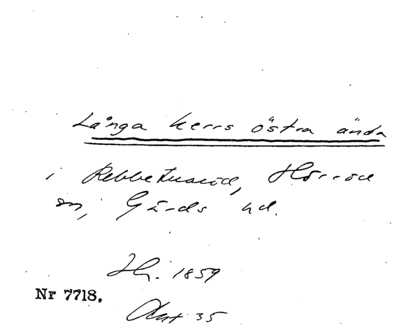 Långa kerrs östra ända
i Rebbetuaröd, Hörröd
sn, Gärds hd.
Hj. 1859
Nr 7718.
Akt 35